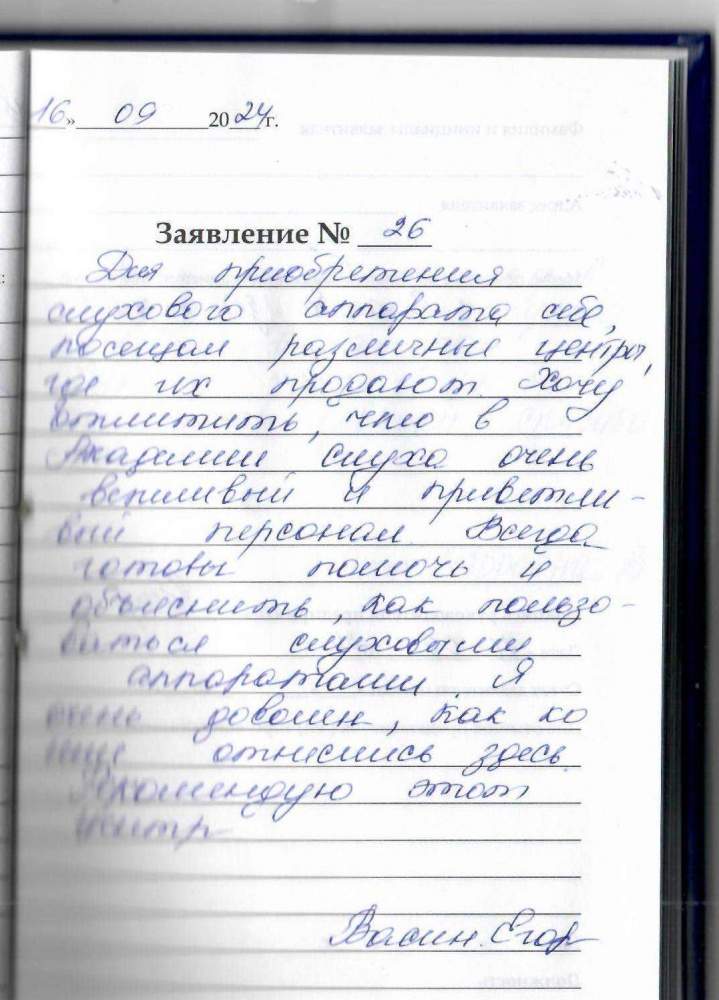 16» 09 2024г.
Заявление № 26
Для приобретения
слухового аппарата себе,
посещал различные центры,
где их продают. Хочу
отметить, что в
Академии слуха очень
вежливый и приветли-
вый персонал. Всегда
готовы помочь и
объяснить, как пользо-
ваться слуховыми
аппаратами. Я
очень доволен, как ко
мне отнеслись здесь.
Рекомендую этот
центр
Васин. Егор